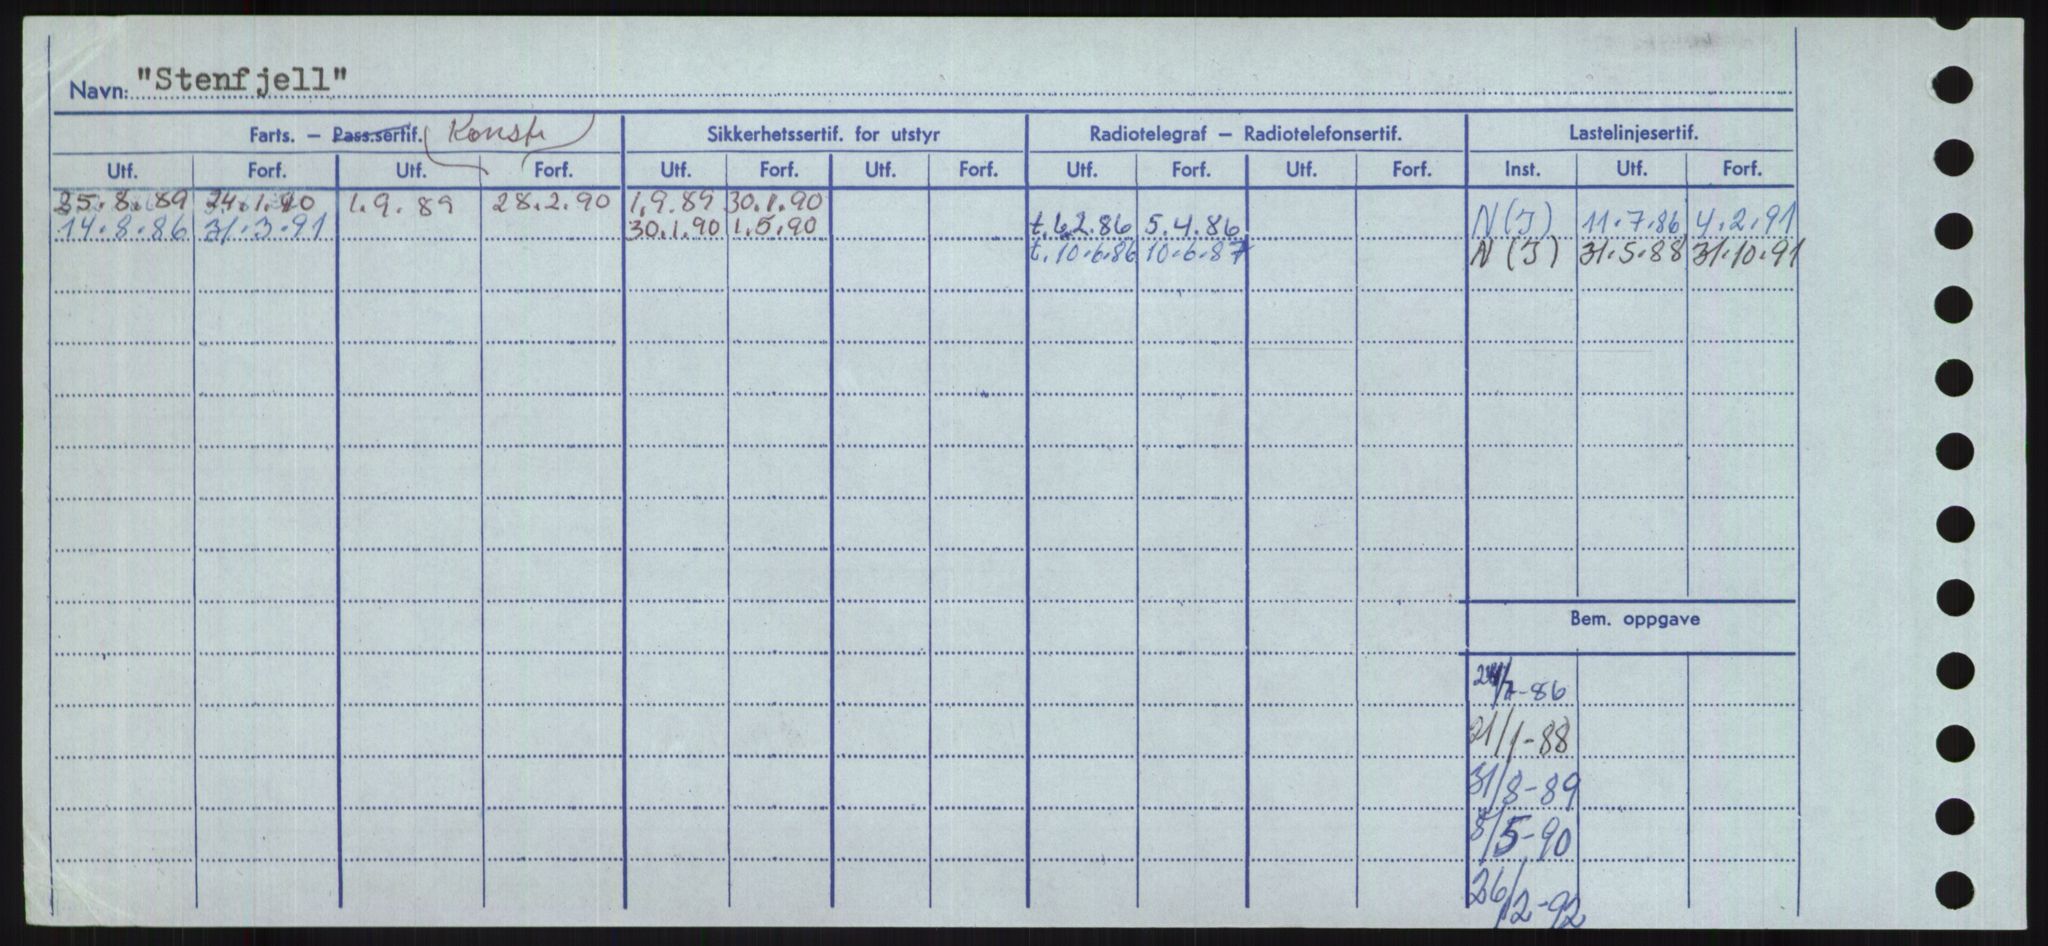 Navn: "Stenfjell"
Farts. – Pass.sertif. Konstr Sikkerhetssertif. for utstyr Radiotelegraf – Radiotelefonsertif. Lastelinjesertif.
Utf. Forf. Utf. Forf. Utf. Forf. Utf. Forf. Utf. Forf. Utf. Forf. Inst. Utf. Forf.
25.8.89 24.1.90 1.9.89 28.2.90 1.9.89 30.1.90
14.8.86 31.3.91 30.1.90 1.5.90 t.6.2.86 5.4.86 N(I) 11.7.86 4.2.91
t.10.6.86 10.6.87 N(I) 31.5.88 31.10.91
Bem. oppgave
24/7-86
21/1-88
31/8-89
8/5-90
26/2-92